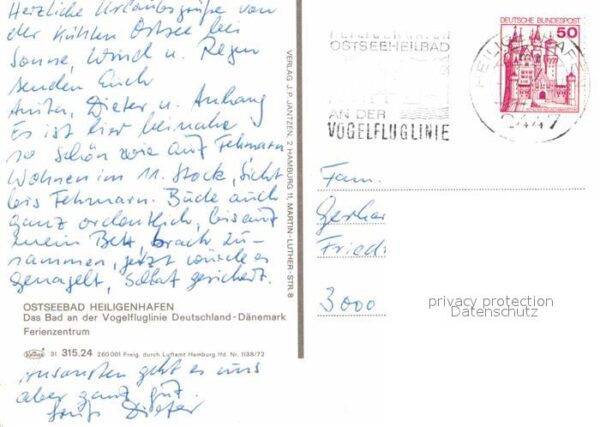 Herzliche Urlaubsgrüße von
der kühlen Ostsee bei
Sonne, Wind u. Regen
senden Euch
Anita, Dieter, u. Anhang
Es ist hier beinahe
so schön wie auf Fehmarn
Wohnen im 11. Stock, Sicht
bis Fehmarn. Bude auch
ganz ordentlich, bis auf
mein Bett, brach zu-
sammen, jetzt wurde es
genagelt, selbst gesichert.
OSTSEEBAD HEILIGENHAFEN
Das Bad an der Vogelfluglinie Deutschland-Dänemark
Ferienzentrum
31 315.24 260 001 Freig. durch Luftamt Hamburg lfd. Nr. 1138/72
ansonsten geht es uns
aber ganz gut.
Gruß Dieter
VERLAG J.P. JANTZEN, 2 HAMBURG 11, MARTIN-LUTHER-STR. 8
HEILIGENHAFEN
OSTSEEHEILBAD
AN DER
VOGELFLUGLINIE
DEUTSCHE BUNDESPOST
50
2447
Fam.
Gerhar
Friedr
3000
privacy protection
Datenschutz